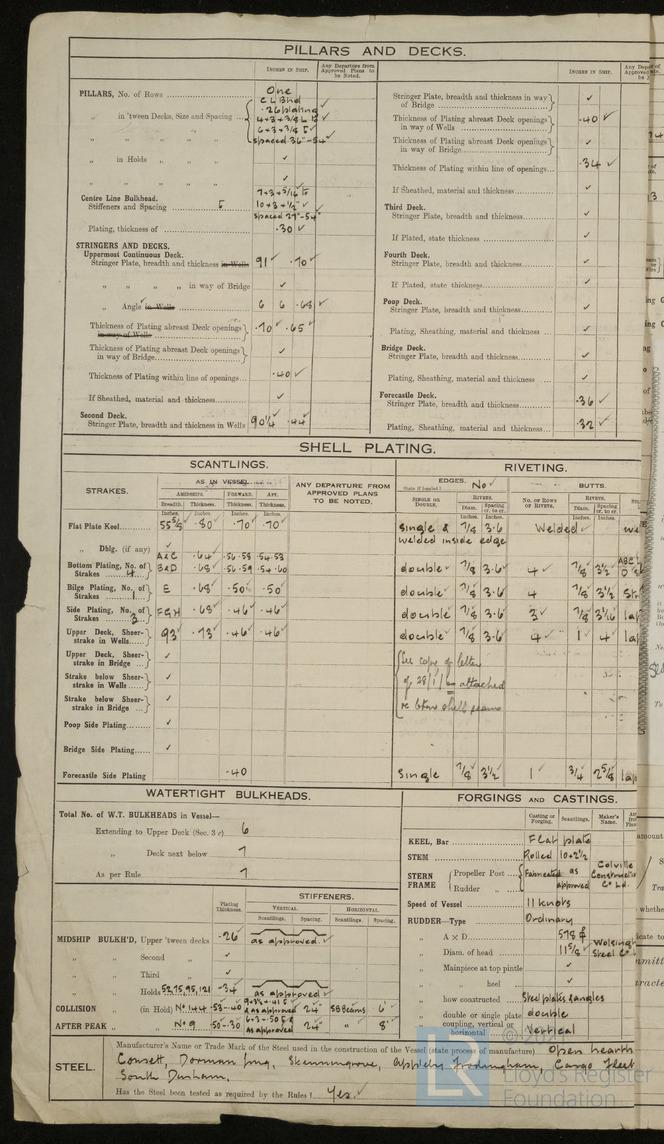 PILLARS AND DECKS.
INCHES IN SHIP. Any Departure from Approved Plans to be Noted.
PILLARS, No. of Rows One
C L Bhd
.26 plating
„ in 'tween Decks, Size and Spacing
spaced 36"-54"
„ „ „ ✓
„ in Holds ✓
„ „ ✓
Centre Line Bulkhead.
Stiffeners and Spacing
10+3+½" ✓
spaced 27"-54"
Plating, thickness of .30 ✓
STRINGERS AND DECKS.
Uppermost Continuous Deck.
Stringer Plate, breadth and thickness in Wells 91 ✓ .70 ✓
„ „ „ „ in way of Bridge ✓
„ Angle in Wells 6 6 .68 ✓
Thickness of Plating abreast Deck openings in way of Wells .70 ✓ .65 ✓
Thickness of Plating abreast Deck openings in way of Bridge ✓
Thickness of Plating within line of openings .40 ✓
If Sheathed, material and thickness ✓
Second Deck.
Stringer Plate, breadth and thickness in Wells 90¼ .44
INCHES IN SHIP.
Stringer Plate, breadth and thickness in way of Bridge ✓
Thickness of Plating abreast Deck openings in way of Wells .40 ✓
Thickness of Plating abreast Deck openings in way of Bridge ✓
Thickness of Plating within line of openings .34 ✓
If Sheathed, material and thickness ✓
Third Deck.
Stringer Plate, breadth and thickness ✓
If Plated, state thickness ✓
Fourth Deck.
Stringer Plate, breadth and thickness ✓
If Plated, state thickness ✓
Poop Deck.
Stringer Plate, breadth and thickness ✓
Plating, Sheathing, material and thickness ✓
Bridge Deck.
Stringer Plate, breadth and thickness ✓
Plating, Sheathing, material and thickness ✓
Forecastle Deck.
Stringer Plate, breadth and thickness .36 ✓
Plating, Sheathing, material and thickness .32 ✓
SHELL PLATING.
SCANTLINGS. RIVETING.
STRAKES. AS IN VESSEL. ANY DEPARTURE FROM APPROVED PLANS TO BE NOTED. EDGES. No ✓ BUTTS.
AMIDSHIPS. FORWARD. AFT. SINGLE OR DOUBLE. RIVETS. No. OF ROWS OF RIVETS. RIVETS.
Breadth. Thickness. Thickness. Thickness. Diam. Spacing cr. to cr. Diam. Spacing cr. to cr.
Inches. Inches. Inches. Inches. Inches. Inches. Inches. Inches.
Flat Plate Keel .80 .70 .70 single & 7/8 3.6 Welded
welded inside edge
„ Dblg. (if any) ✓
Bottom Plating, No. of Strakes 4 A&C .64 .56.58 .54.53
B&D .68 .56.59 .54.60 double 7/8 3.6 4 7/8 3½
Bilge Plating, No. of Strakes 1 E .68 .50 .50 double 7/8 3.6 4 7/8 3½
Side Plating, No. of Strakes 3 FGH .68 .46 .46 double 7/8 3.6 3 7/8
Upper Deck, Sheerstrake in Wells 93 .73 .46 .46 double 7/8 3.6 4 1 4
Upper Deck, Sheerstrake in Bridge ✓
Strake below Sheerstrake in Wells ✓
Strake below Sheerstrake in Bridge ✓
See copy of letter
attached
Poop Side Plating ✓
Bridge Side Plating ✓
Forecastle Side Plating .40 single 7/8 3½ 1 ¾ 2⅝
WATERTIGHT BULKHEADS.
Total No. of W.T. BULKHEADS in Vessel—
Extending to Upper Deck (Sec. 3 c) 6
„ Deck next below 1
As per Rule 7
STIFFENERS.
Plating Thickness. VERTICAL. HORIZONTAL.
Scantlings. Spacing. Scantlings. Spacing.
MIDSHIP BULKH'D, Upper 'tween decks .26 as approved ✓
„ „ Second „ ✓
„ „ Third „ ✓
„ „ Holds 52,75,95,121 .34 as approved ✓
COLLISION „ (in Hold) No 144 .53-.40 as approved 24" 6'
AFTER PEAK „ „ No 9 .50-.30 as approved 24" 8'
FORGINGS AND CASTINGS.
Casting or Forging. Scantlings. Maker's Name.
KEEL, Bar Flat plate
STEM Rolled 10+2½
STERN FRAME Propeller Post Fabricated as approved Colville Construct
Rudder „ Co Ld.
Speed of Vessel 11 knots
RUDDER—Type Ordinary
„ A × D 578
„ Diam. of head 11⅝ Steel Co
„ Mainpiece at top pintle ✓
„ „ heel ✓
„ how constructed Steel plates & angles
„ double or single plate double
„ coupling, vertical or horizontal Vertical
STEEL. Manufacturer's Name or Trade Mark of the Steel used in the construction of the Vessel (state process of manufacture) Open hearth
Consett, Dorman Long, Skinningrove, Appleby Frodingham, Cargo Fleet
South Durham.
Has the Steel been tested as required by the Rules? Yes. ✓
LR
Lloyd's Register
Foundation